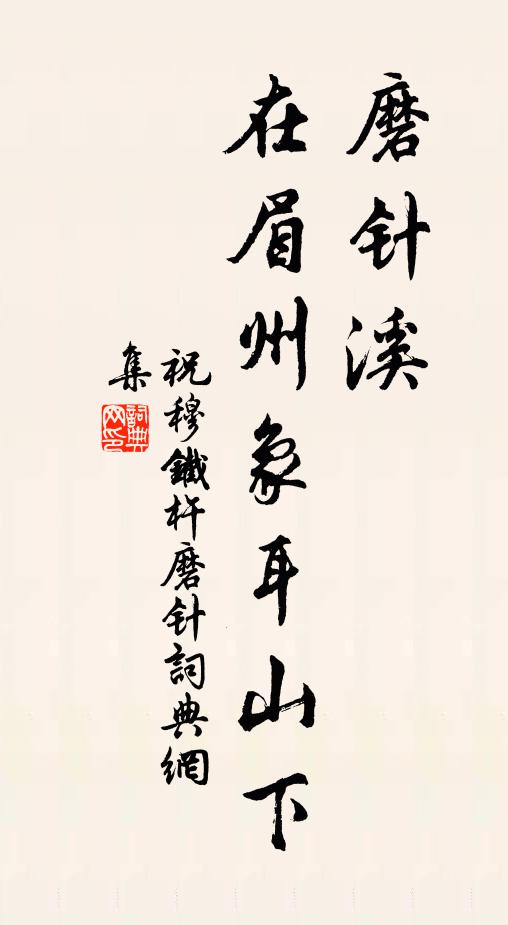 磨针溪
在眉州象耳山下
祝穆鐵杵磨针詞典網
集
詞典
网印